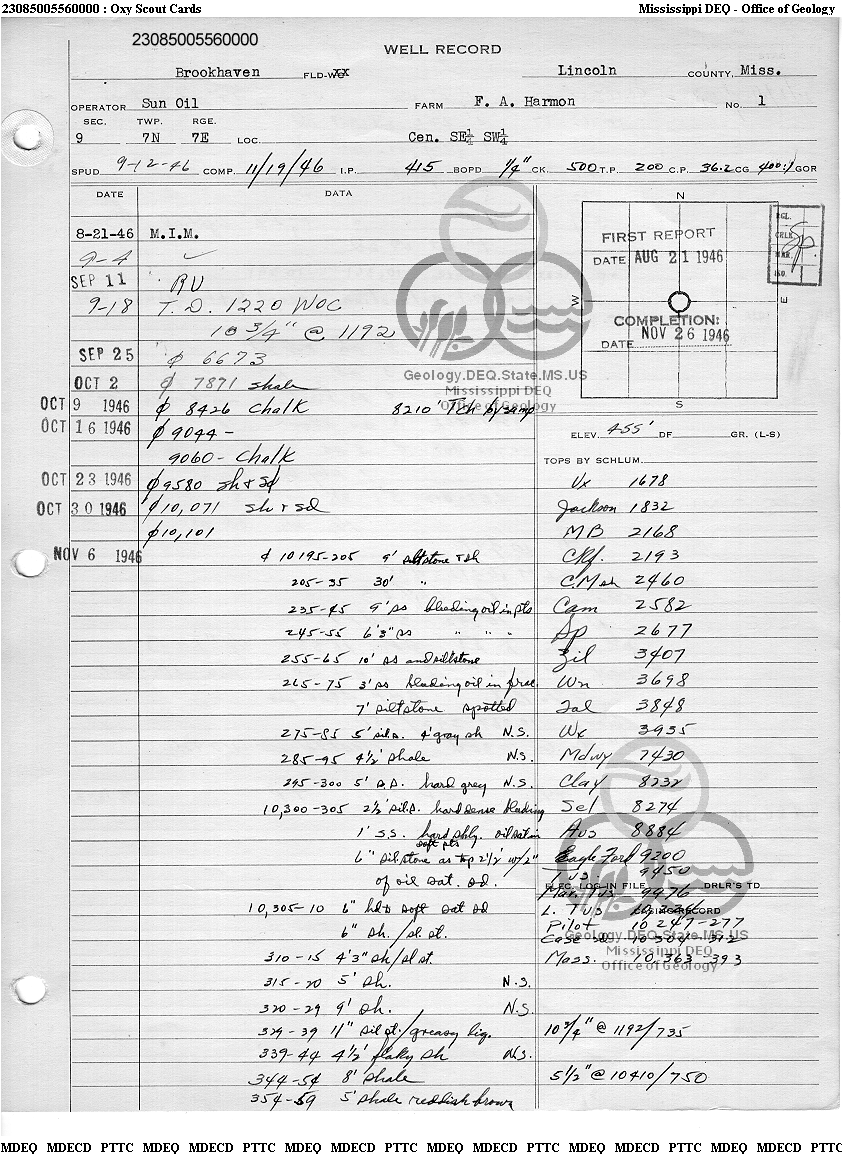 23085005560000 : Oxy Scout Cards
Mississippi DEQ - Office of Geology
23085005560000
WELL RECORD
Brookhaven FLD-WO XX Lincoln COUNTY, Miss.
OPERATOR Sun Oil FARM F. A. Harmon No. 1
SEC. TWP. RGE.
9 7N 7E LOC. Cen. SE¼ SW¼
SPUD 9-12-46 COMP. 11/19/46 I.P. 415 BOPD ¼" CK. 500 T.P. 200 C.P. 36.2 CG 400:1 GOR
DATE DATA
8-21-46 M.I.M.
9-4 ✓
SEP 11 RU
9-18 T.D. 1220 WOC
10 3/4" @ 1192
SEP 25 ϕ 6673
OCT 2 ϕ 7891 shale
OCT 9 1946 ϕ 8426 Chalk 8210' Tch by samp
OCT 16 1946 ϕ 9044 -
9060 - Chalk
OCT 23 1946 ϕ 9580 sh & sd
OCT 30 1946 ϕ 10,071 sh & sd
ϕ 10,101
NOV 6 1946 ¢ 10195-205 9' siltstone & sh
205-35 30' "
235-45 9' ss bleeding oil in pts
245-55 6'3" ss " " "
255-65 10' ss and siltstone
265-75 3' ss bleeding oil in frac.
7' siltstone spotted
275-85 5' sil.s. 4' gray sh N.S.
285-95 4½' shale N.S.
295-300 5' s.s. hard grey N.S.
10,300-305 2½' sil.s. hard dense bleeding
1' s.s. hard shly. oil sat in
soft pts
6" silstone as top 2½' w/2"
of oil sat. sd.
10,305-10 6" hd & soft sat sd
6" sh./sl st.
310-15 4'3" sh/sl st.
315-20 5' sh. N.S.
320-29 9' sh. N.S.
329-39 11" sil st./greasy lig.
339-44 4½' flaky sh N.S.
344-54 8' shale
354-59 5' shale reddish brown
N
W
E
S
FIRST REPORT
DATE AUG 21 1946
COMPLETION:
DATE NOV 26 1946
REL.
CHLK
MKR.
NO.
Geology.DEQ.State.MS.US
Mississippi DEQ
Office of Geology
ELEV. 455' DF GR. (L-S)
TOPS BY SCHLUM.
Vx 1678
Jackson 1832
MB 2168
Ckf. 2193
C.M sh 2460
Cam 2582
Sp 2677
Zil 3407
Wn 3698
Tal 3848
Wx 3935
Mdwy 7430
Clay 8232
Sel 8274
Aus 8884
Eagle Ford 9200
Tus. 9450
ELEC. LOG IN FILE DRLR'S TD
Mar. Tus 9976
L. Tus
CASING RECORD
Pilot 10 247-277
Case sd 10304-312
Mass. 10,363-393
Geology.DEQ.State.MS.US
Mississippi DEQ
Office of Geology
10 3/4" @ 1192/735
5 1/2" @ 10410/750
MDEQ MDECD PTTC MDEQ MDECD PTTC MDEQ MDECD PTTC MDEQ MDECD PTTC MDEQ MDECD PTTC MDEQ MDECD PTTC